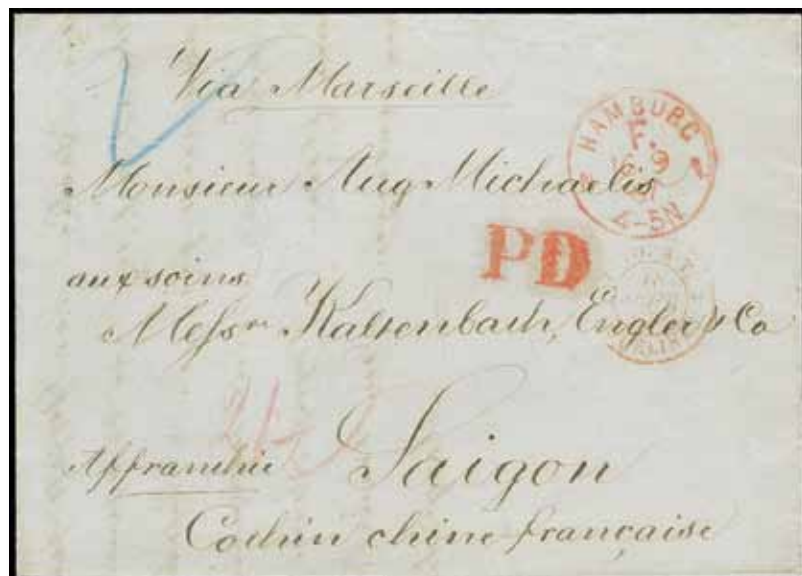 Via Marseille
HAMBURG
F. 9
4-5N
Monsieur Aug Michaelis
PD
aux soins
Messrs Kaltenbach, Engler & Co
Affranchie Saigon
Cochin chine française